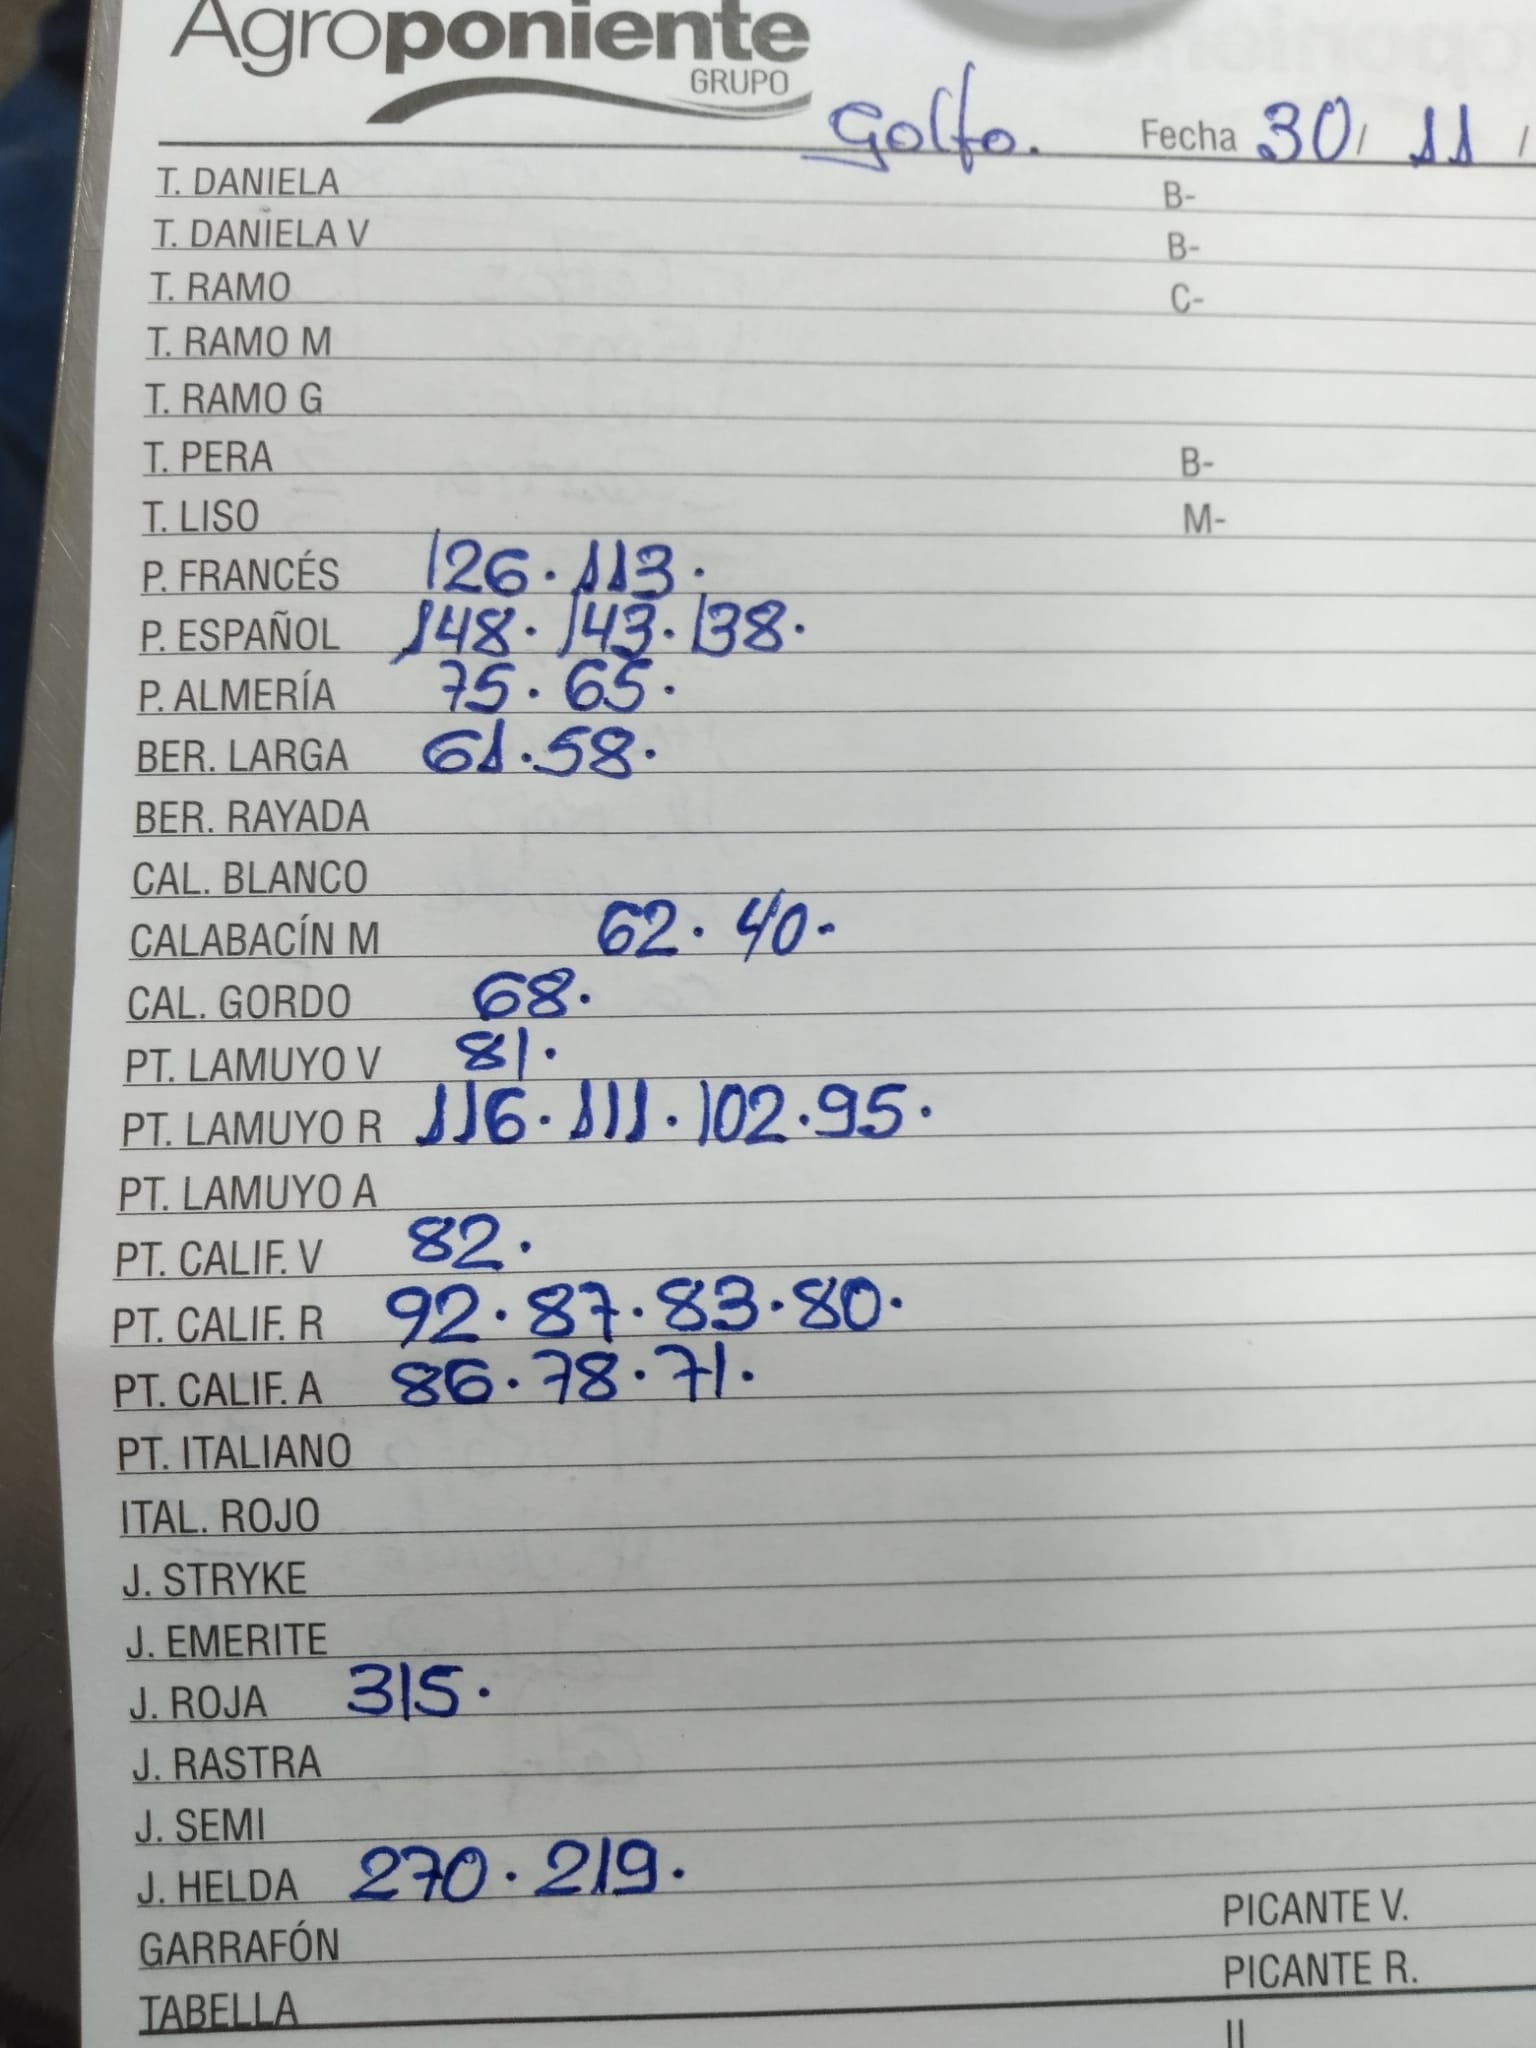 Agroponiente
GRUPO
Golfo. Fecha 30/ 11 /
T. DANIELA B-
T. DANIELA V B-
T. RAMO C-
T. RAMO M
T. RAMO G
T. PERA B-
T. LISO M-
P. FRANCÉS 126. 113.
P. ESPAÑOL 148. 143. 138.
P. ALMERÍA 75. 65.
BER. LARGA 61. 58.
BER. RAYADA
CAL. BLANCO
CALABACÍN M 62. 40.
CAL. GORDO 68.
PT. LAMUYO V 81.
PT. LAMUYO R 116. 111. 102. 95.
PT. LAMUYO A
PT. CALIF. V 82.
PT. CALIF. R 92. 87. 83. 80.
PT. CALIF. A 86. 78. 71.
PT. ITALIANO
ITAL. ROJO
J. STRYKE
J. EMERITE
J. ROJA 315.
J. RASTRA
J. SEMI
J. HELDA 270. 219.
GARRAFÓN PICANTE V.
TABELLA PICANTE R.